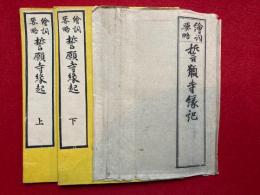 繪詞要略 誓願寺縁記
繪詞要略 誓願寺縁起 下
繪詞要略 誓願寺縁起 上